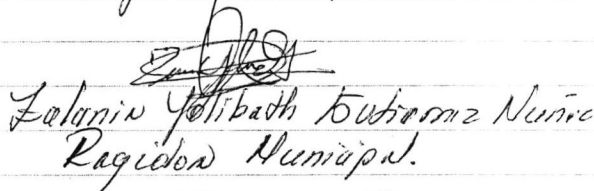 Zelania Yolibath Gutierrez Nuñe
Regidor Municipal.